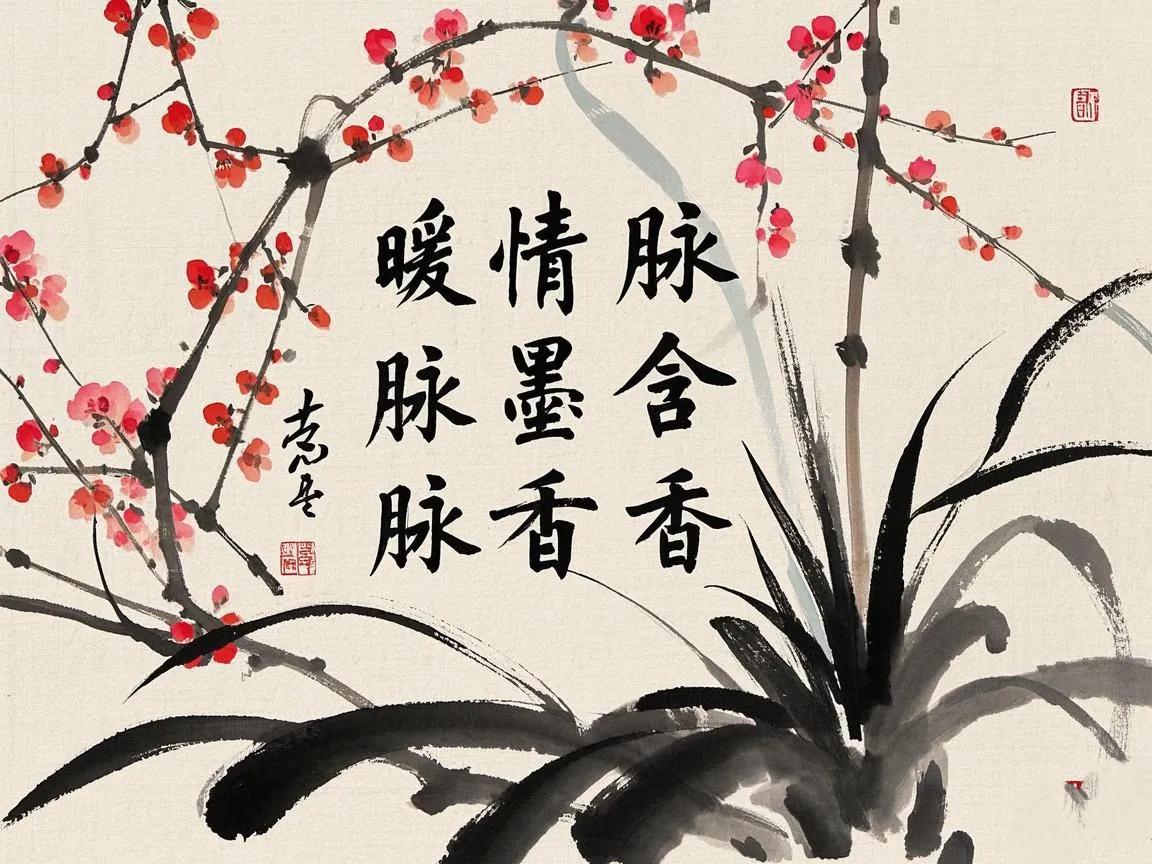 脉含香
情墨香
暖脉脉